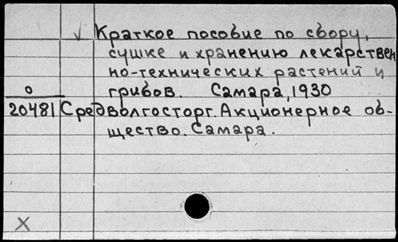 √ Краткое пособие по сбору,
сушке и хранению лекарствен
но-технических растений и
грибов. Самара, 1930
0
20481 Средволгосторг. Акционерное об-
щество. Самара.
X